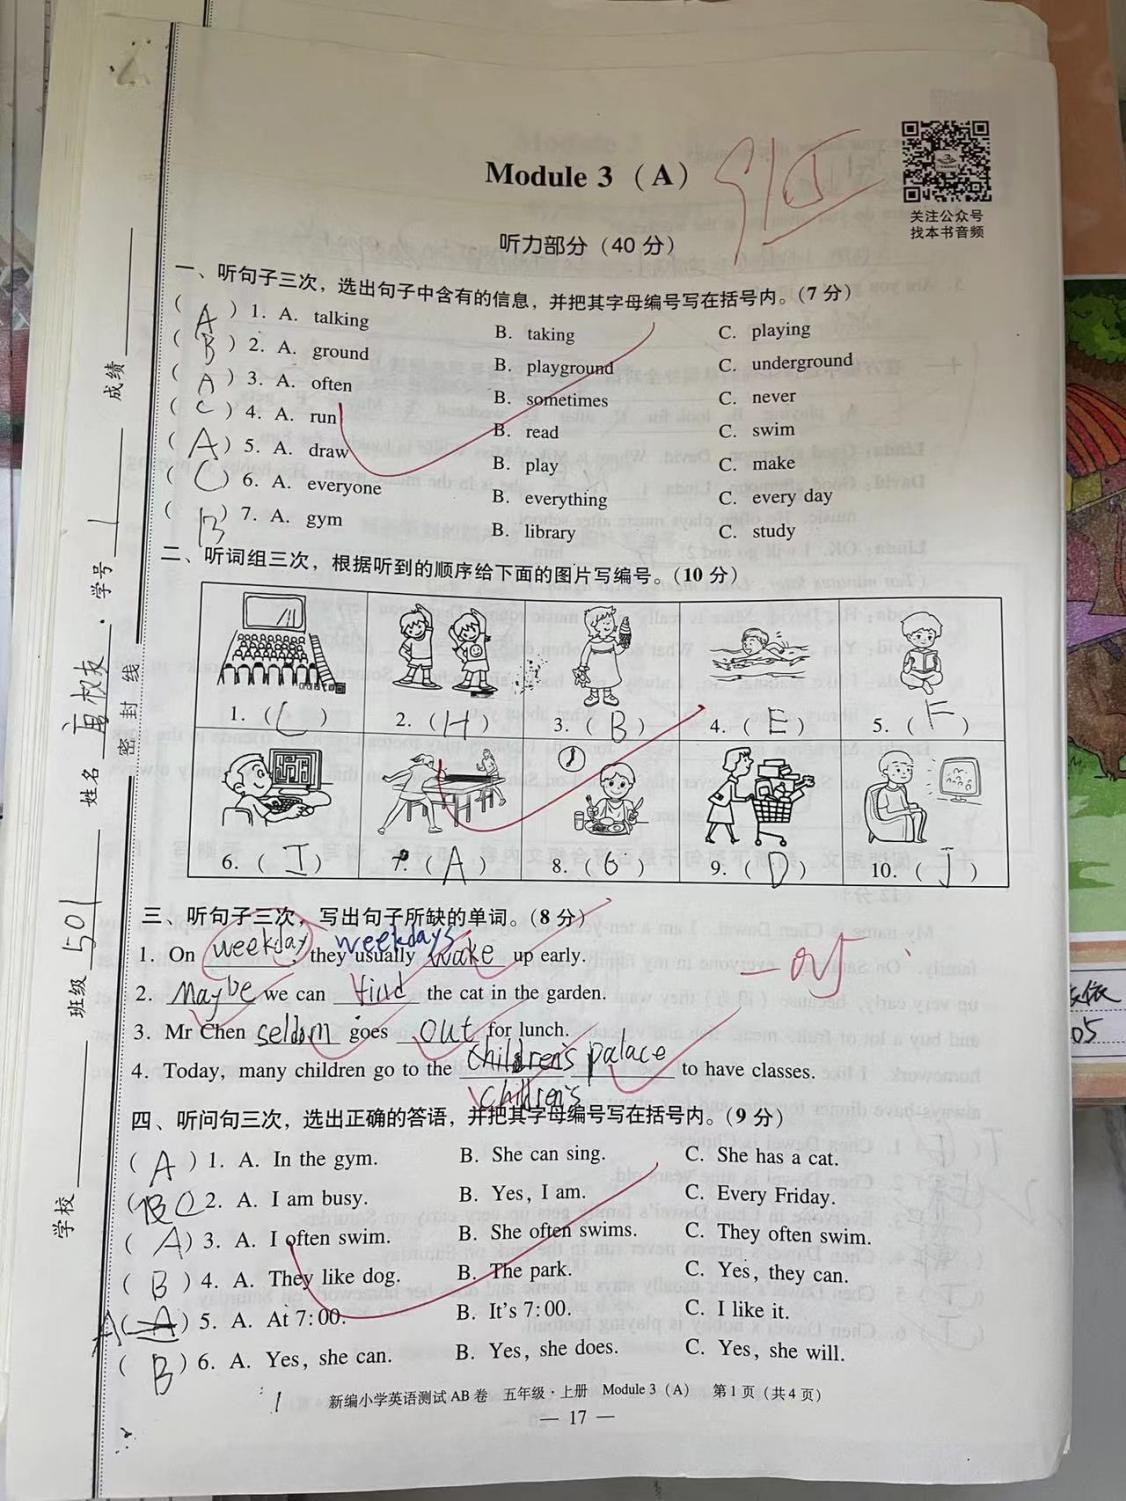 Module 3 (A)
关注公众号
找本书音频
听力部分(40 分)
一、听句子三次，选出句子中含有的信息，并把其字母编号写在括号内。(7 分)
( A ) 1. A. talking B. taking C. playing
( B ) 2. A. ground B. playground C. underground
( A ) 3. A. often B. sometimes C. never
( C ) 4. A. run B. read C. swim
( A ) 5. A. draw B. play C. make
( C ) 6. A. everyone B. everything C. every day
( B ) 7. A. gym B. library C. study
二、听词组三次，根据听到的顺序给下面的图片写编号。(10 分)
1. ( C ) 2. ( H ) 3. ( B ) 4. ( E ) 5. ( F )
6. ( I ) 7. ( A ) 8. ( G ) 9. ( D ) 10. ( J )
三、听句子三次，写出句子所缺的单词。(8 分)
weekdays
1. On weekday they usually wake up early.
2. Maybe we can find the cat in the garden.
3. Mr Chen seldom goes out for lunch.
4. Today, many children go to the children's palace to have classes.
children's
四、听问句三次，选出正确的答语，并把其字母编号写在括号内。(9 分)
( A ) 1. A. In the gym. B. She can sing. C. She has a cat.
( C ) 2. A. I am busy. B. Yes, I am. C. Every Friday.
( A ) 3. A. I often swim. B. She often swims. C. They often swim.
( B ) 4. A. They like dog. B. The park. C. Yes, they can.
A ( A ) 5. A. At 7:00. B. It's 7:00. C. I like it.
( B ) 6. A. Yes, she can. B. Yes, she does. C. Yes, she will.
新编小学英语测试AB卷 五年级·上册 Module 3 (A) 第1页(共4页)
— 17 —
学校
班级 501
姓名
学号 1
成绩
密 封 线
05